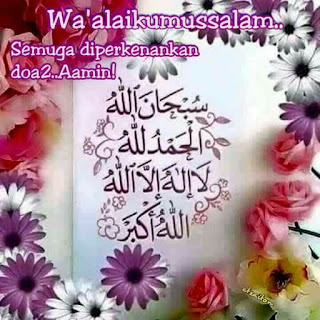 Wa'alaikumussalam..
Semuga diperkenankan
doa2..Aamin!
سُبْحَانَ اللهِ
الْحَمْدُ لِلّٰهِ
لَا إِلٰهَ إِلَّا اللهُ
اللهُ أَكْبَرُ